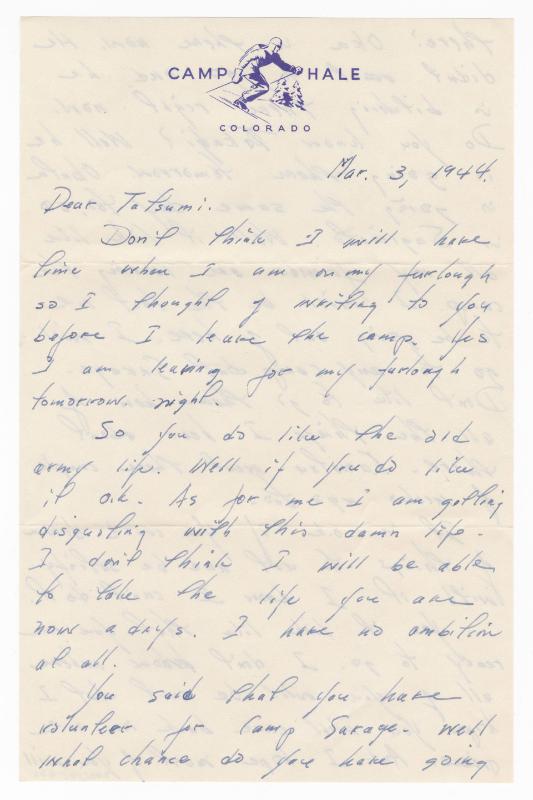 CAMP HALE
COLORADO
Mar. 3, 1944.
Dear Tatsumi.
Don't think I will have
time when I am on my furlough
so I thought of writing to you
before I leave the camp. Yes
I am leaving for my furlough
tomorrow night.
So you do like the old
army life. Well if you do like
it o.k. As for me I am getting
disgusting with this damn life.
I don't think I will be able
to take the life you are
now a days. I have no ambition
at all.
You said that you have
volunteer for Camp Savage. Well
what chance do you have going